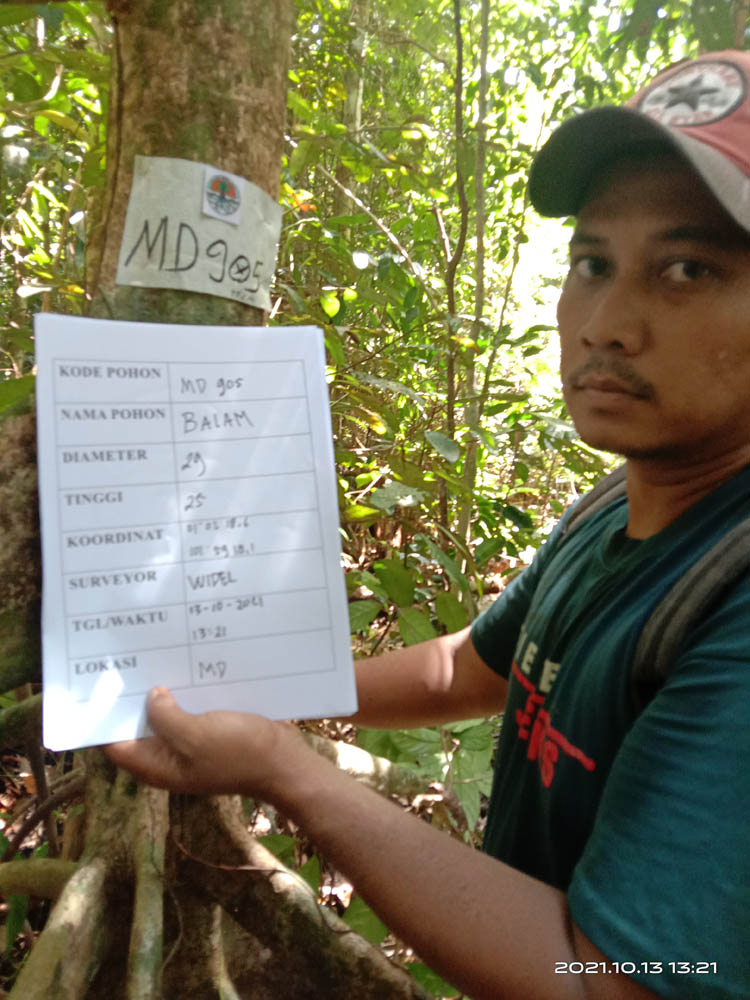 MD905
KODE POHON MD 905
NAMA POHON BALAM
DIAMETER 29
TINGGI 25
KOORDINAT 01° 02 18.6
101° 59 18.1
SURVEYOR WIDEL
TGL/WAKTU 13-10-2021
13:21
LOKASI MD
2021.10.13 13:21